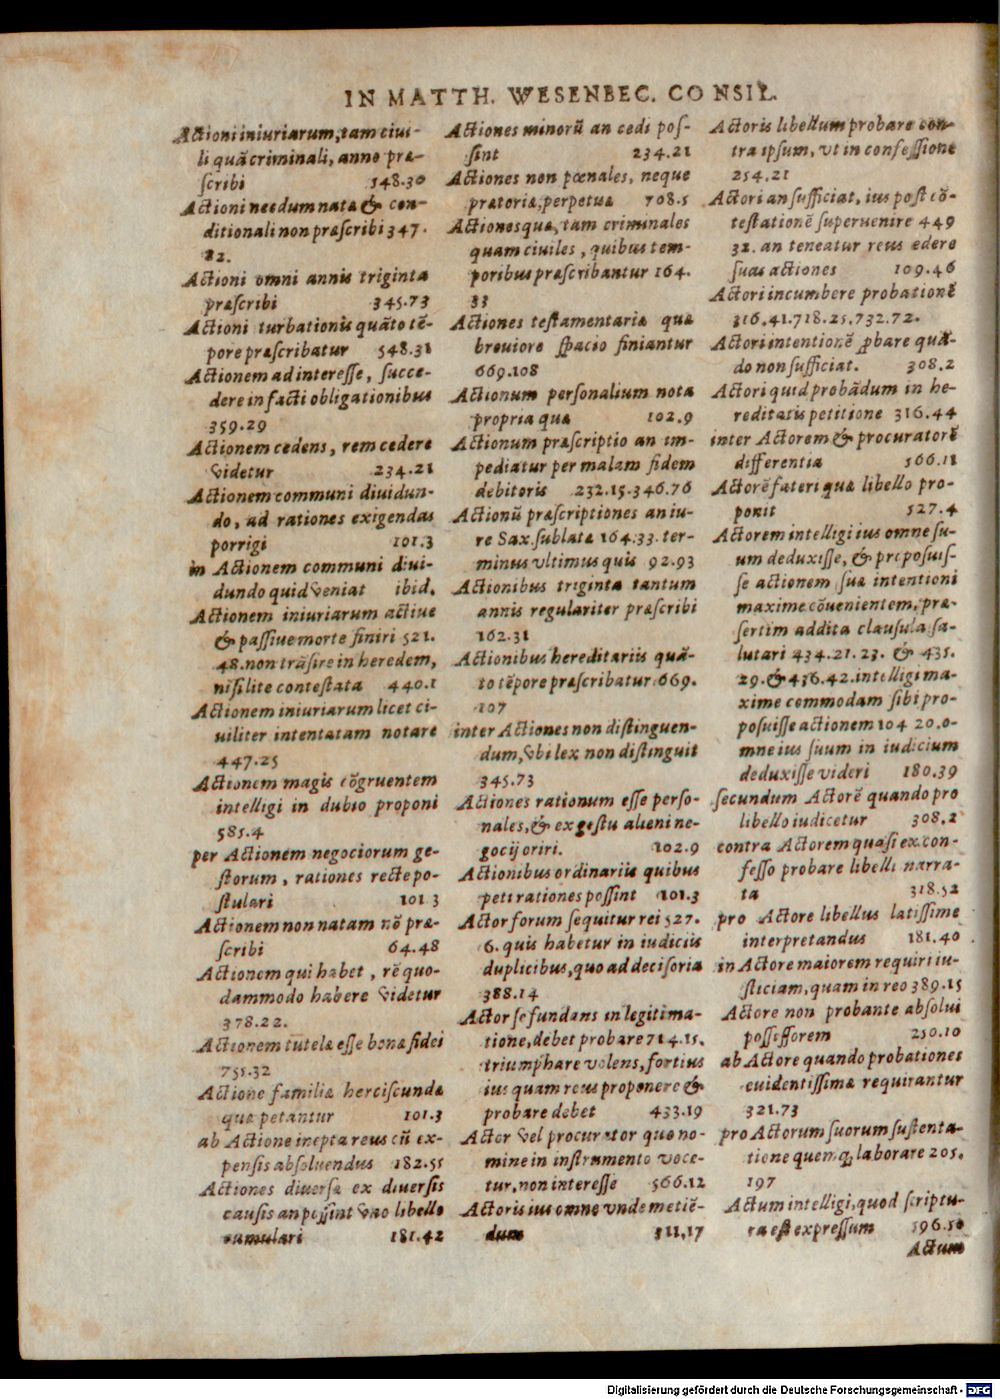 IN MATTH. WESENBEC. CONSIL.
Actioni iniuriarum, tam ciui-
li quã criminali, anno præ-
scribi 548.30
Actioni necdum natæ & con-
ditionali non præscribi 347.
82.
Actioni omni annis triginta
præscribi 345.73
Actioni turbationis quãto tẽ-
pore præscribatur 548.31
Actionem ad interesse, succe-
dere in facti obligationibus
359.29
Actionem cedens, rem cedere
videtur 234.21
Actionem communi diuidun-
do, ad rationes exigendas
porrigi 101.3
in Actionem communi diui-
dundo quid veniat ibid.
Actionem iniuriarum actiue
& passiue morte finiri 521.
48. non trãsire in heredem,
nisi lite contestata 440.1
Actionem iniuriarum licet ci-
uiliter intentatam notare
447.25
Actionem magis cõgruentem
intelligi in dubio proponi
585.4
per Actionem negociorum ge-
storum, rationes recte po-
stulari 101 3
Actionem non natam nõ præ-
scribi 64.48
Actionem qui habet, rẽ quo-
dammodo habere videtur
378.22.
Actionem tutelæ esse bonæ fidei
755.32
Actione familiæ herciscundæ
quæ petantur 101.3
ab Actione inepta reus cũ ex-
pensis absoluendus 182.55
Actiones diuersæ ex diuersis
causis an possint vno libello
cumulari 181.42
Actiones minorũ an cedi pos-
sint 234.21
Actiones non pœnales, neque
prætoriæ, perpetuæ 708.5
Actiones quæ, tam criminales
quam ciuiles, quibus tem-
poribus præscribantur 164.
33
Actiones testamentariæ quæ
breuiore spacio finiantur
669.108
Actionum personalium nota
propria quæ 102.9
Actionum præscriptio an im-
pediatur per malam fidem
debitoris 232.15.346.76
Actionũ præscriptiones an iu-
re Sax. sublatæ 164.33. ter-
minus vltimus quis 92.93
Actionibus triginta tantum
annis regulariter præscribi
162.31
Actionibus hereditariis quã-
to tẽpore præscribatur 669.
107
inter Actiones non distinguen-
dum, vbi lex non distinguit
345.73
Actiones rationum esse perso-
nales, & ex gestu alieni ne-
gocij oriri. 102.9
Actionibus ordinariis quibus
peti rationes possint 101.3
Actor forum sequitur rei 527.
6. quis habetur in iudiciis
duplicibus, quo ad decisoria
388.14
Actor se fundans in legitima-
tione, debet probare 714.15.
triumphare volens, fortius
ius quam reus proponere &
probare debet 433.19
Actor vel procurator quo no-
mine in instrumento voce-
tur, non interesse 566.12
Actoris ius omne vnde metiẽ-
dum 311,17
Actoris libellum probare con-
tra ipsum, vt in confessione
254.21
Actori an sufficiat, ius post cõ-
testationẽ superuenire 449
32. an teneatur reus edere
suas actiones 109.46
Actori incumbere probationẽ
316.41.718.25.732.72.
Actori intentionẽ ꝓbare quã-
do non sufficiat. 308.2
Actori quid probãdum in he-
reditatis petitione 316.44
inter Actorem & procuratorẽ
differentia 566.11
Actorẽ fateri quæ libello pro-
ponit 527.4
Actorem intelligi ius omne su-
um deduxisse, & proposuis-
se actionem suæ intentioni
maxime cõuenientem, præ-
sertim addita clausula sa-
lutari 434.21.23. & 435.
29. & 436.42. intelligi ma-
xime commodam sibi pro-
posuisse actionem 104 20. o-
mne ius suum in iudicium
deduxisse videri 180.39
secundum Actorẽ quando pro
libello iudicetur 308.2
contra Actorem quasi ex con-
fesso probare libelli narra-
ta 318.52
pro Actore libellus latissime
interpretandus 181.40
in Actore maiorem requiri iu-
sticiam, quam in reo 389.15
Actore non probante absolui
possessorem 250.10
ab Actore quando probationes
euidentissimæ requirantur
321.73
pro Actorum suorum sustenta-
tione quemq; laborare 205.
197
Actum intelligi, quod scriptu-
ra est expressum 596.50
Actum
Digitalisierung gefördert durch die Deutsche Forschungsgemeinschaft - DFG